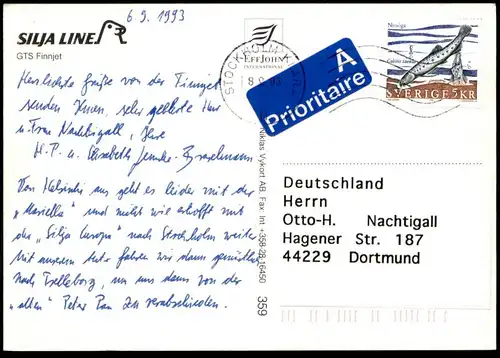 6.9.1993
SILJA LINE
GTS Finnjet
EFFJOHN
INTERNATIONAL
STOCKHOLM
A
Prioritaire
SVERIGE 5KR
Herzlichste Grüße von der Finnjet
senden Ihnen, sehr geehrter Herr
u. Frau Nachtigall, Ihre
H.P. u. Elisabeth
Von Helsinki aus geht es leider mit der
"Mariella" und nicht wie erhofft mit
der "Silja Europa" nach Stockholm weiter.
Mit unserem Auto fahren wir dann gemütlich
nach Trelleborg, um uns dann von der
"alten" Peter Pan zu verabschieden.
Niklas Vykort AB, Fax Int +358-28-16450
359
Deutschland
Herrn
Otto-H. Nachtigall
Hagener Str. 187
44229 Dortmund